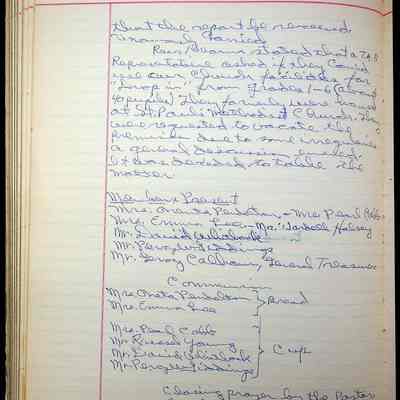 that the report be received.
Carried
Rev. Adams stated that a
Representative asked if they could
use our Church facilities for
"Drop in" from grades 1-6 (about
40 pupils) They formerly were housed
at St. Paul's Methodist Church. They
were requested to vacate the
premises due to some irregularities
a general discussion ensued.
It was decided to table the
matter.
Members Present
Mrs. Oneta Pendleton, - Mrs. Pearl Cobb
Mrs. Emma Lee - Mrs. Halsey
Mr. David
Mr. Percy Giddings
Mr. Calhoun, General Treasurer
Communion
Mrs. Oneta Pendleton
Mrs. Emma Lee } Bread
Mrs. Pearl Cobb
Mr. Russell Young
Mr. David } Cup
Mr. Percy Giddings
Closing prayer by the Pastor